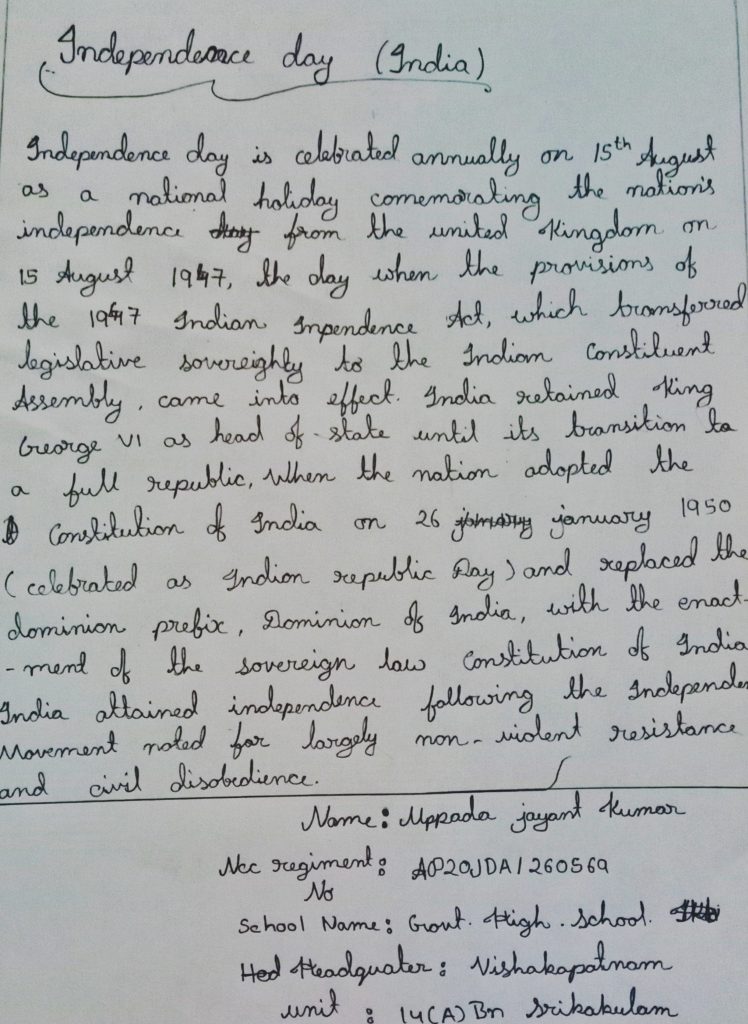 Independence day (India)
Independence day is celebrated annually on 15th August
as a national holiday comemorating the nation's
independence from the united Kingdom on
15 August 1947, the day when the provisions of
the 1947 Indian Inpendence Act, which transferred
legislative sovereighly to the Indian Constituent
Assembly, came into effect. India retained King
George VI as head of state until its transition to
a full republic, When the nation adopted the
Constitution of India on 26 january 1950
(celebrated as Indian republic Day) and replaced the
dominion prefix, Dominion of India, with the enact-
-ment of the sovereign law Constitution of India
India attained independence following the Independen
Movement noted for largely non-violent resistance
and civil disobedience.
Name: Uppada jayant Kumar
Ncc regiment: AP20JDA1260569
No
School Name: Govt. High. School.
Headquater: Vishakapatnam
unit : 14(A)Bn Srikakulam